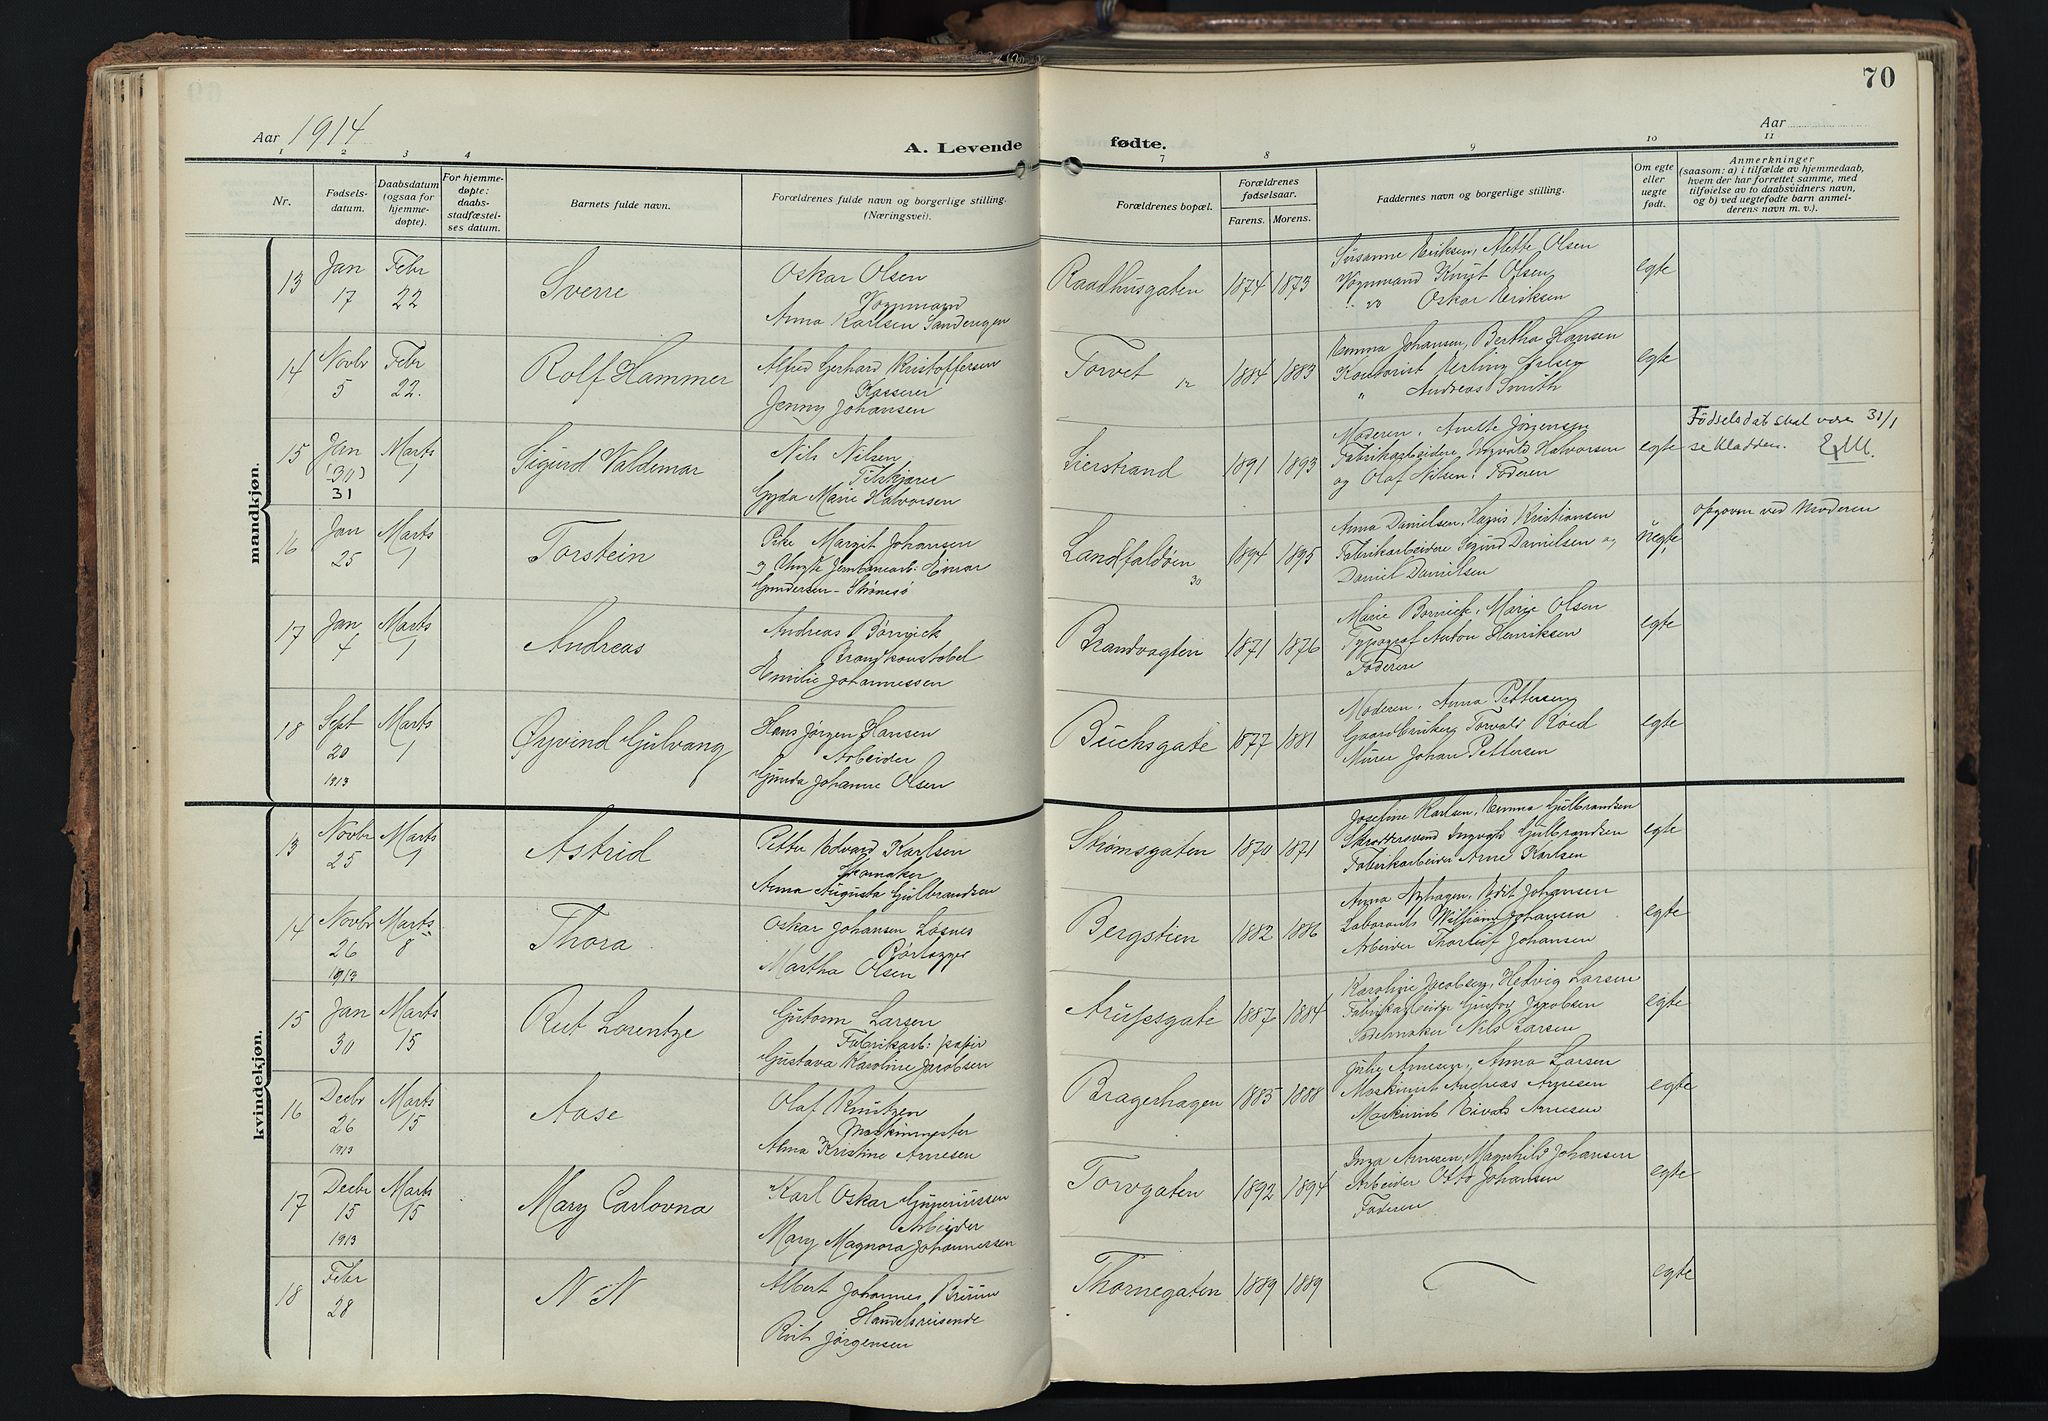 70
Aar 1914
A. Levende fødte.
Aar
1 2 3 4 7 8 9 10 11
Nr.
Fødsels-
datum.
Daabsdatum
(ogsaa for
hjemme-
døpte).
For hjemme-
døpte:
daabs-
stadfæstel-
ses datum.
Barnets fulde navn.
Forældrenes fulde navn og borgerlige stilling.
(Næringsvei).
Forældrenes bopæl.
Forældrenes
fødselsaar.
Farens. Morens.
Faddernes navn og borgerlige stilling.
Om egte
eller
uegte
født.
Anmerkninger
(saasom: a) i tilfælde av hjemmedaab,
hvem der har forrettet samme, med
tilføielse av to daabsvidners navn,
og b) ved uegtefødte barn anmel-
derens navn m. v.).
mandkjøn.
13
Jan
17
Febr
22
Sverre
Oskar Olsen
Vognmand
Anna Karlsen
Raadhusgaten
1874 1873
Susanne Eriksen, Mette Olsen
Vognmand Knut Olsen
Oskar Eriksen
egte
14
Novbr
5
Febr
22.
Rolf Hammer
Alfred Gerhard Kristoffersen
Kasserer
Jenny Johansen
Torvet 12
1884 1883
Emma Johansen, Bertha Hansen
Kontorist Erling Nilsen
" Andreas Smith
egte
15
Jan
(30)
31
Marts
1
Sigurd Valdemar
Nils Nilsen
Gyda Marie Halvorsen
Lierstrand
1891 1893
Moderen, Anette Jørgensen
Fabrikarbeidere Ingvald Halvorsen
og Olaf Nilsen. Faderen
egte
Fødselsdat skal være 31/1
se kladden.
16
Jan
25
Marts
1
Torstein
Pike Margit Johansen
og Einar
Gundersen - Strømsø
Landfaldøen
30
1894 1895
Anna Danielsen, Kristiansen
Fabrikarbeidere Sigurd Danielsen og
Daniel Danielsen
uegte
opgaven ved Moderen
17
Jan
4
Marts
1
Andreas
Andreas Bornick
Brandkonstabel
Emilie Johannessen
Brandvagten
1871 1876
Marie Bornick, Marie Olsen
Typograf Anton Henriksen
Faderen
egte
18
Sept
20
1913
Marts
1
Øyvind Gulvang
Hans Jørgen Hansen
Arbeider
Gunda Johanne Olsen
Buchsgate
1877 1881
Moderen, Anna Pettersen
Gaardbruker Torvald Røed
Murer Johan Pettersen
egte
kvindekjøn.
13
Novbr
25
Marts
1
Astrid
Petter Edvard Karlsen
Skomaker
Anna Augusta Gulbrandsen
Strømsgaten
1870 1871
Josefine Karlsen, Emma Gulbrandsen
Skræddersvend Ingvald Gulbrandsen
Fabrikarbeider Arne Karlsen
egte
14
Novbr
26
1913
Marts
8
Thora
Oskar Johansen Løsnes
Rørlægger
Martha Olsen
Bergstien
1882 1886
Anna Nyhagen, Edit Johansen
Laborant William Johansen
Arbeider Thorleif Johansen
egte
15
Jan
30
Marts
15
Rut Lorentze
Gutorm Larsen
Fabrikarb: papir
Gustava Karoline Jacobsen
1887 1884
Karoline Jacobsen, Hedvig Larsen
Fabrikarbeider Gustav Jacobsen
Sadelmaker Nils Larsen
egte
16
Decbr
26
1913
Marts
15
Aase
Olaf Knutzen
Maskinmester
Anna Kristine Arnesen
Bragerhagen
1885 1888
Julie Arnesen, Anna Larsen
Maskinist Andreas Arnesen
Maskinist Eivals Arnesen
egte
17
Decbr
15
1913
Marts
15
Mary Carlovna
Karl Oskar
Arbeider
Mary Magnora Johannessen
Torvgaten
1892 1894
Inga Arnesen, Magnhild Johansen
Arbeider Otto Johansen
Faderen
egte
18
Febr
28
N N
Albert Johannes Bruun
Handelsreisende
Rut Jørgensen
Thornegaten
1889 1889
egte